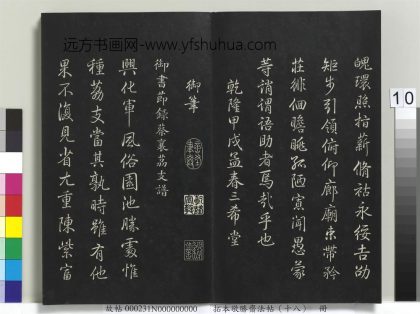 远方书画网- www.yfshuhua.com
魄環照指薪脩祜永綏吉劭
矩步引領俯仰廊廟束帶矜
莊徘徊瞻眺孤陋寡聞愚蒙
等誚謂語助者焉哉乎也
乾隆甲戌孟春三希堂
御筆
御書節錄蔡襄荔支譜
興化軍風俗園池勝處惟
種荔支當其熟時雖有他
果不復見省尤重陳紫富
10
故帖 000231N000000000 拓本敬勝齋法帖（十八） 冊